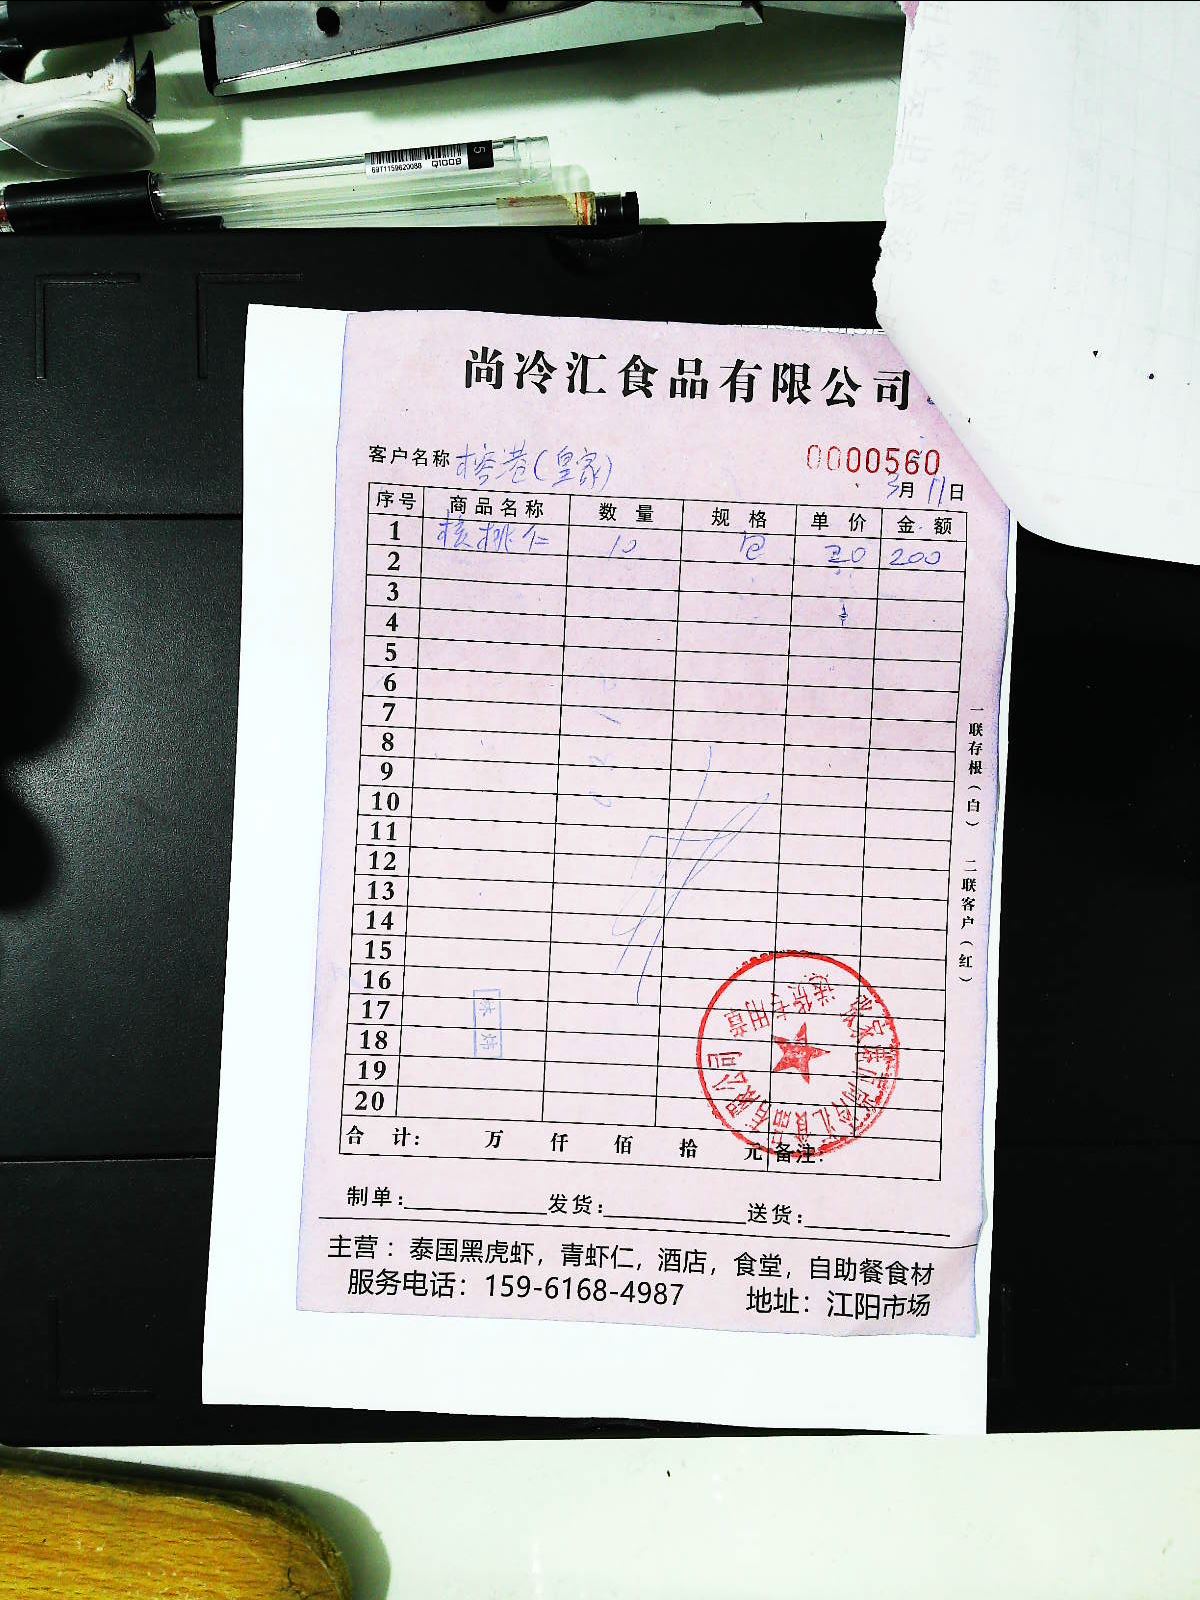 5
6971159620088 Q1008
尚冷汇食品有限公司
客户名称 榕港(皇家)
0000560
3月11日
序号 商品名称 数量 规格 单价 金额
1 核桃仁 10 包 20 200
2
3
4
5
6
7
8
9
10
11
12
13
14
15
16
17
18
19
20
合 计: 万 仟 佰 拾 元 备注:
一联存根(白) 二联客户(红)
张家港市尚冷汇食品有限公司
送货专用章
制单: 发货: 送货:
主营：泰国黑虎虾，青虾仁，酒店，食堂，自助餐食材
服务电话：159-6168-4987 地址：江阳市场